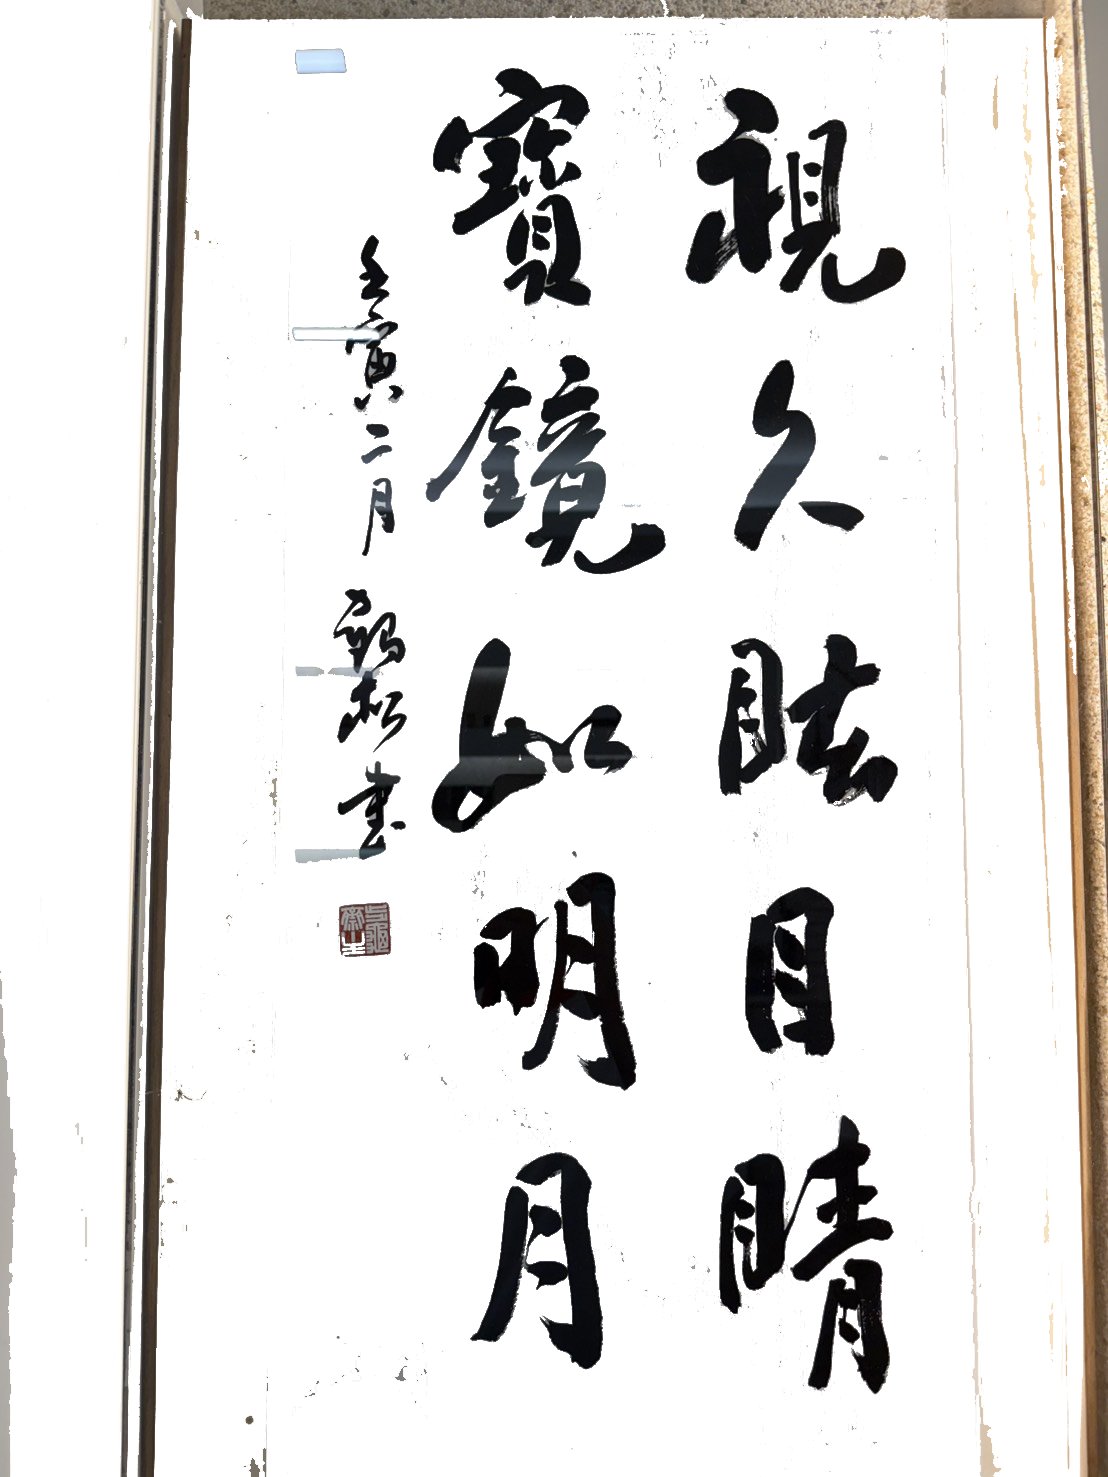 視久眩目睛
寶鏡如明月
壬寅二月 鶴松書